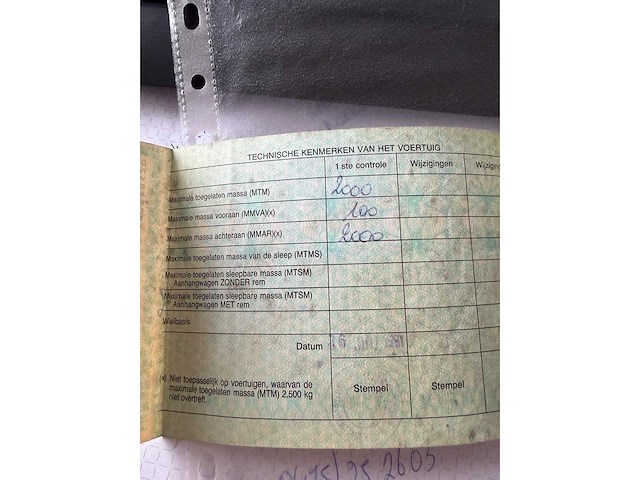 TECHNISCHE KENMERKEN VAN HET VOERTUIG
1 ste controle Wijzigingen
Maximale toegelaten massa (MTM) 2000
Maximale massa vooraan (MMVA)(x) 100
Maximale massa achteraan (MMAR)(x) 2000
Maximale toegelaten massa van de sleep (MTMS)
Maximale toegelaten sleepbare massa (MTSM)
Aanhangwagen ZONDER rem
Maximale toegelaten sleepbare massa (MTSM)
Aanhangwagen MET rem
Wielbasis
Datum
(x) Niet toepasselijk op voertuigen, waarvan de
maximale toegelaten massa (MTM) 2.500 kg
niet overtreft.
Stempel Stempel